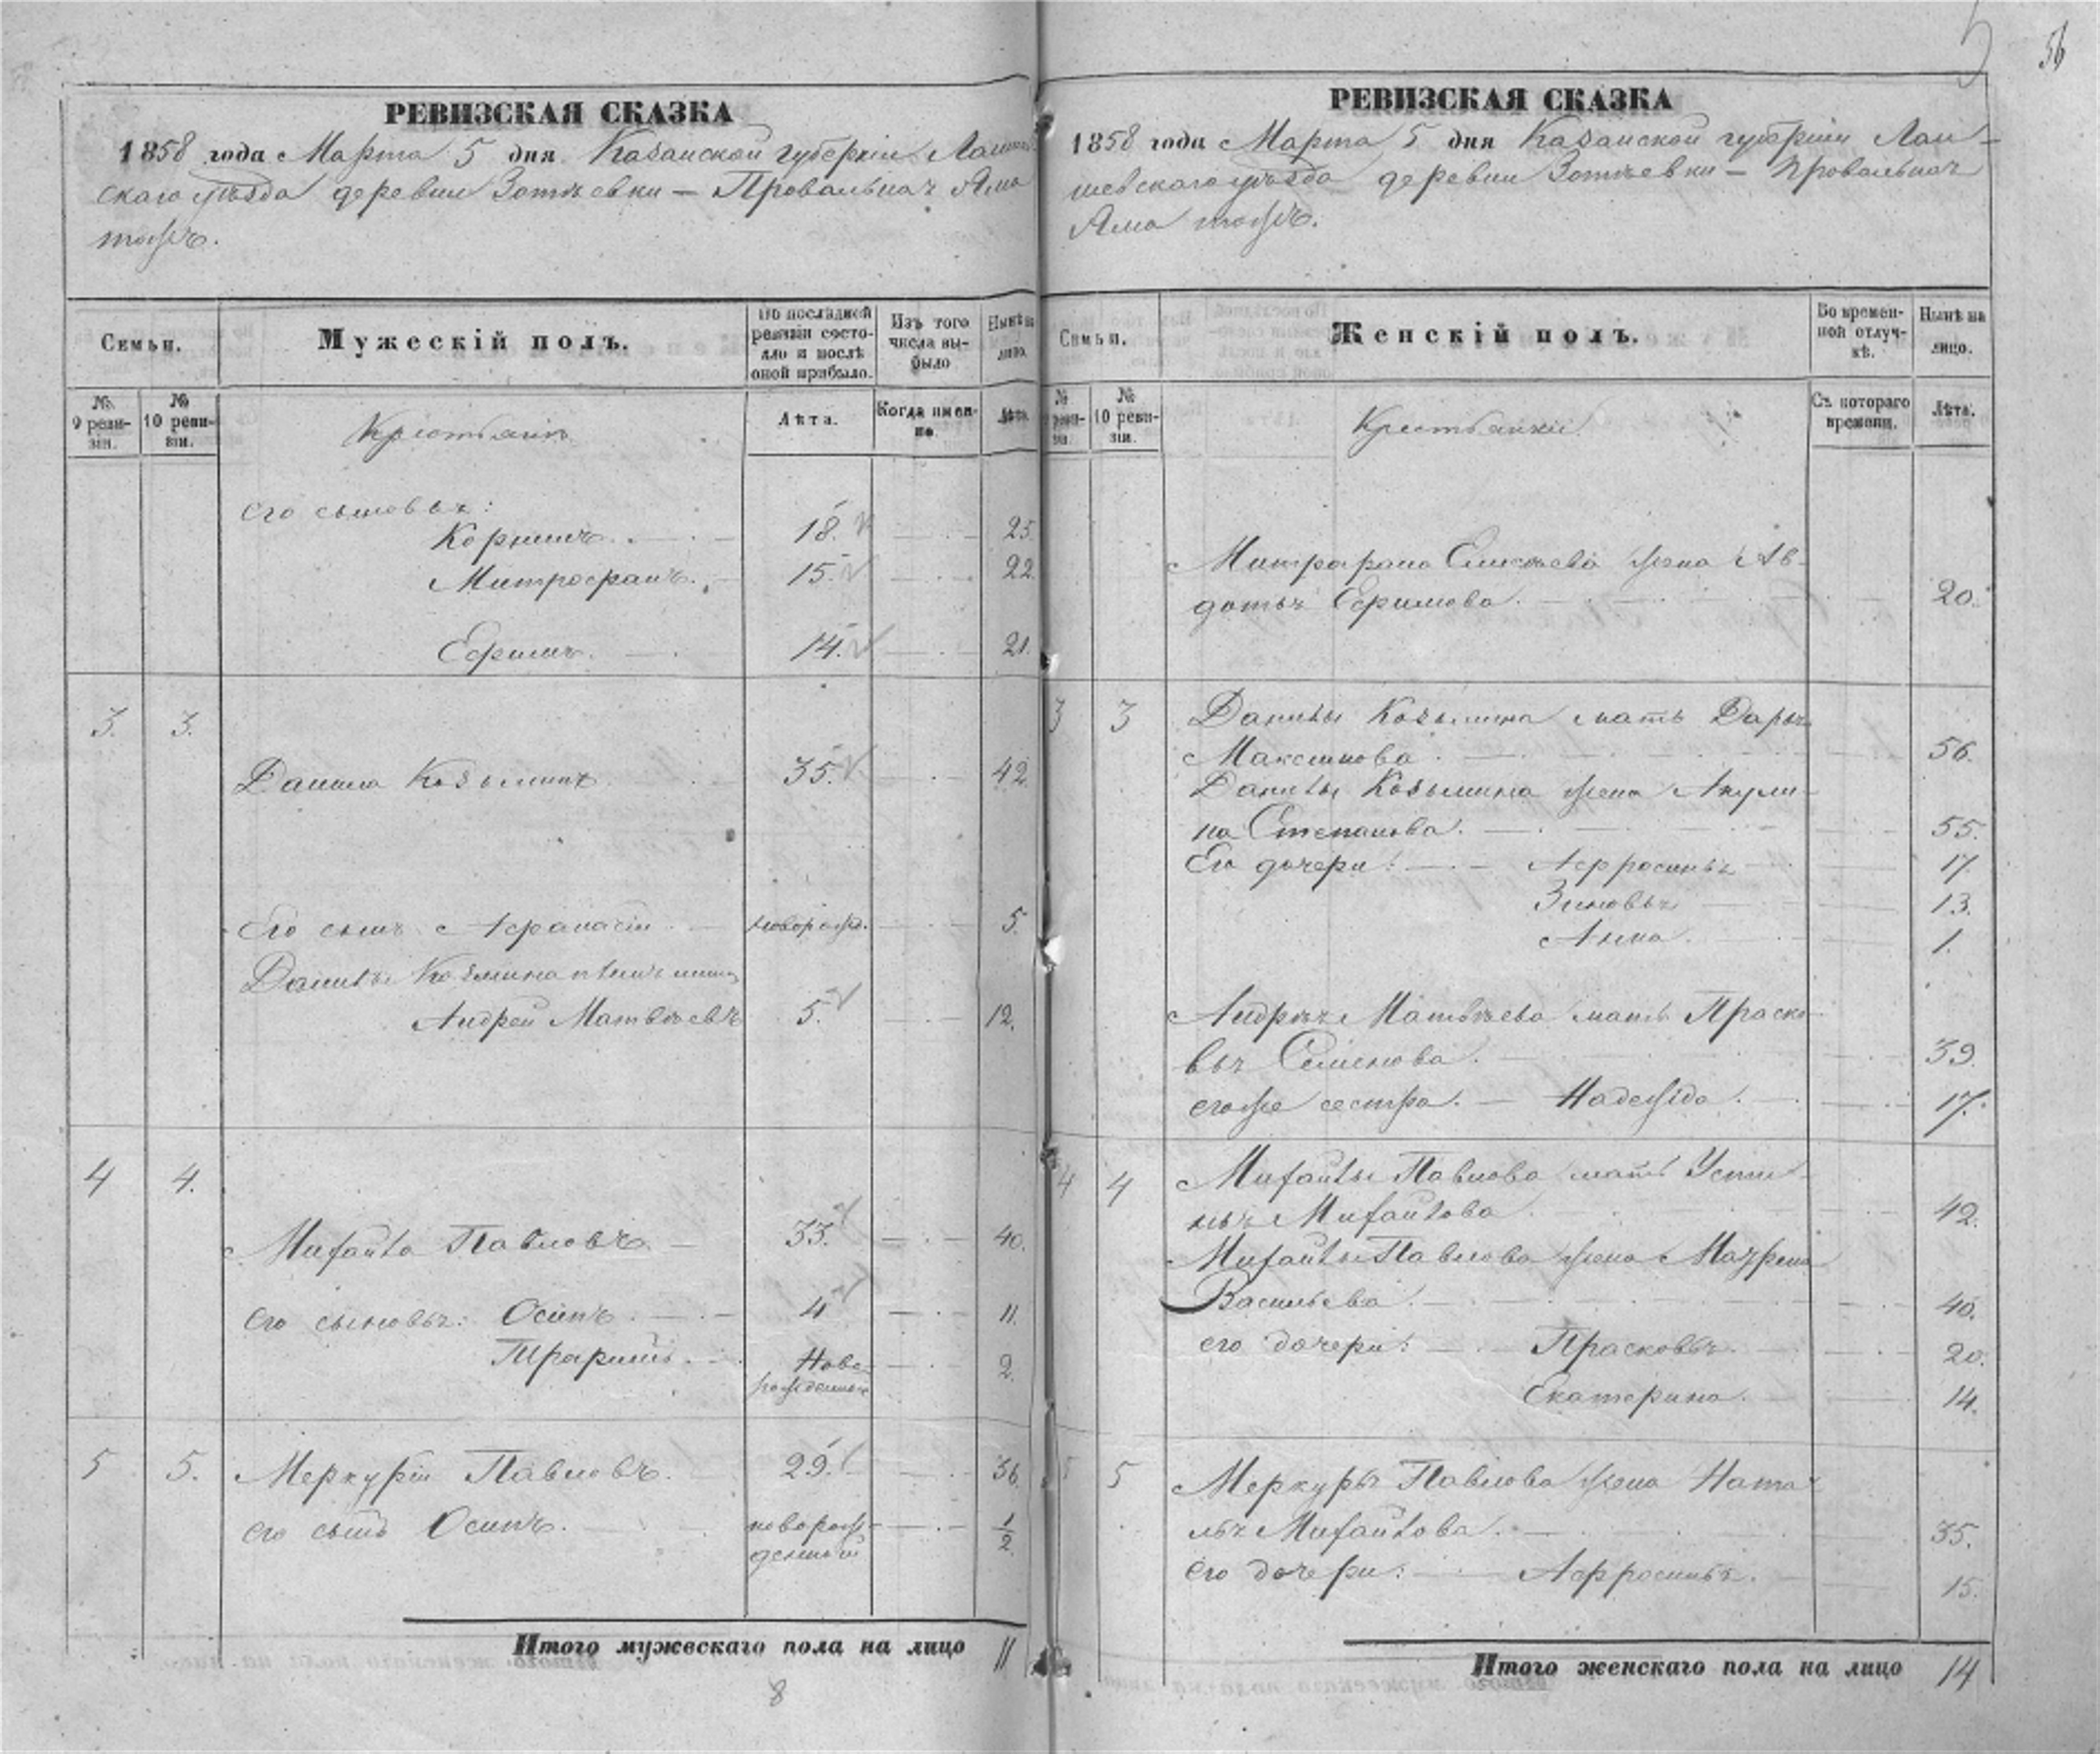 5 56
РЕВИЗСКАЯ СКАЗКА
1858 года Марта 5 дня Казанской губерніи Лаишев
скаго уѣзда деревни Зотѣевки — Провальная Яма
тожъ.
Семьи.
Мужескій полъ.
По послѣдней
ревизіи состо-
яло и послѣ
оной прибыло.
Изъ того
числа вы-
было
Нынѣ на
лицо.
№
9 реви-
зіи.
№
10 реви-
зіи.
Крестьяне
Лѣта.
Когда имен-
но.
Лѣта.
его сыновья:
Корнилъ 18. 25.
Митрофанъ. 15. 22.
Ефимъ. 14. 21.
3. 3.
Данила Козьминъ 35. 42.
Его сынъ Афанасій новорожд. 5.
Данилы Козмина племянникъ
Андрей Матвѣевъ 5. 12.
4 4.
Михайла Павловъ 33. 40.
его сыновья: Осипъ 4 11.
Трафимъ. Ново-
рожденный 2.
5 5.
Меркурій Павловъ. 29. 36.
его сынъ Осипъ. новорож-
денный 1/2
Итого мужескаго пола на лицо 11
8
РЕВИЗСКАЯ СКАЗКА
1858 года Марта 5 дня Казанской губерніи Лаи-
шевскаго уѣзда деревни Зотѣевки — Провальная
Яма тожъ.
Семьи.
Женскій полъ.
Во времен-
ной отлуч-
кѣ.
Нынѣ на
лицо.
№
9 реви-
зіи.
№
10 реви-
зіи.
Крестьянки
Съ котораго
времени.
Лѣта.
Митрофана Елисѣева жена Ав-
дотья Ефимова. 20.
3 3
Данилы Козьмина мать Дарья
Максимова. 56.
Данилы Козьмина жена Акули-
на Степанова. 55.
Его дочери: Афросинья 17.
Зиновья 13.
Анна. 1.
Андрея Матвѣева мать Праско-
вья Семенова. 39.
егоже сестра. — Надежда. 17.
4 4
Михайлы Павлова мать Усти-
нья Михайлова 42.
Михайлы Павлова жена Матрена
Васильева. 40.
его дочери: Прасковья 20.
Екатерина. 14.
5 5
Меркурья Павлова жена Ната-
лья Михайлова. 35.
его дочери: Афросинья. 15.
Итого женскаго пола на лицо 14